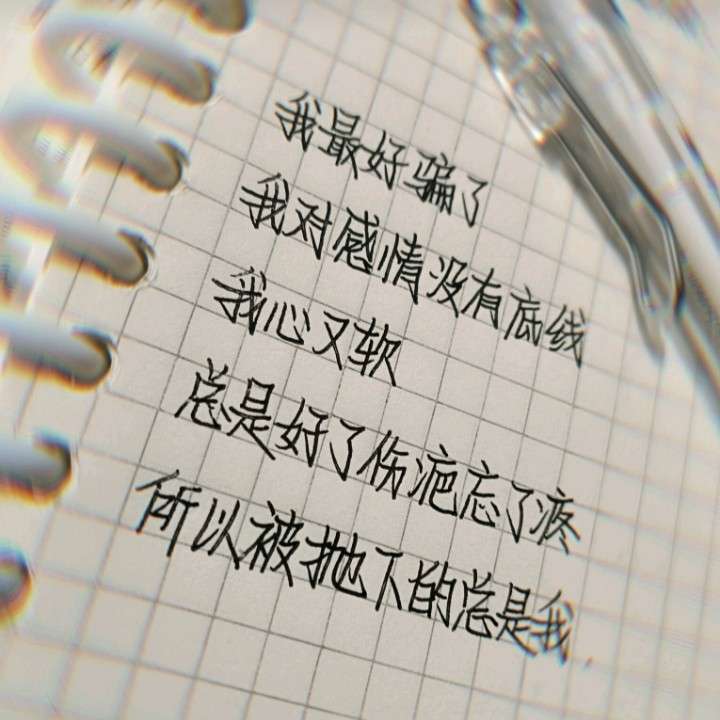 我最好骗了
我对感情没有底线
我心又软
总是好了伤疤忘了疼
所以被抛下的总是我.